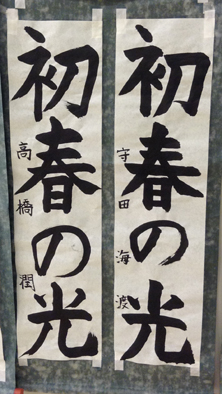 初春の光
守田海渡
初春の光
高橋潤